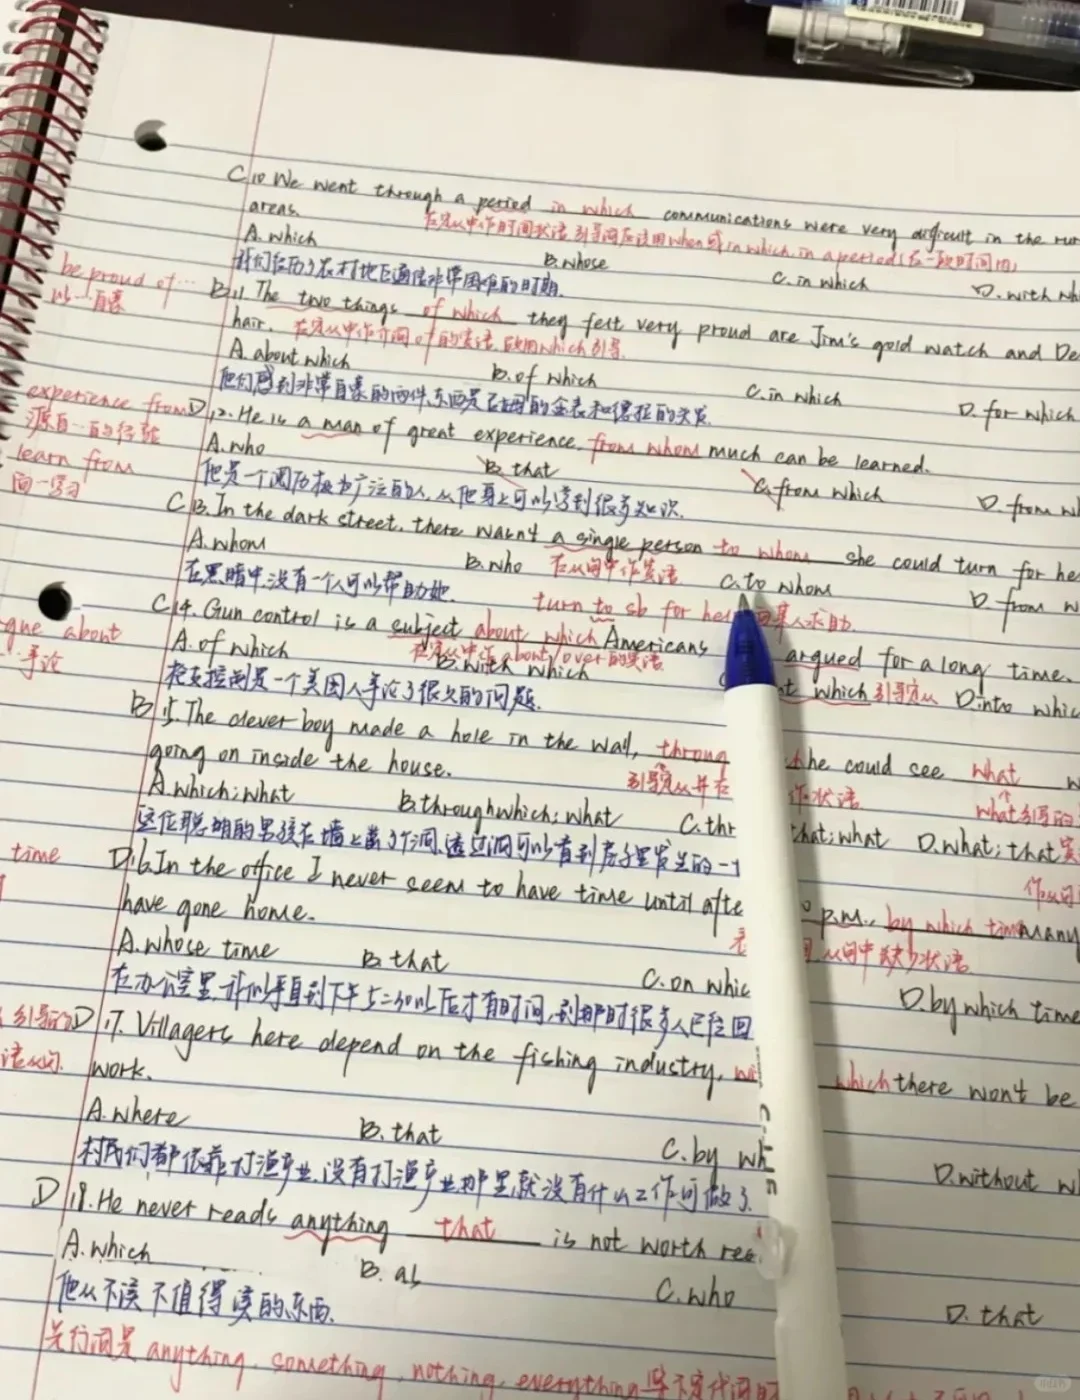 C 10 We went through a period in which communications were very difficult in the rur
areas.
在定从中作时间状语,引导词应该用when或in which, in a period(在一段时间内)
A. which B. whose C. in which D. with wh
我们经历了农村地区通信非常困难的时期.
be proud of…
以…自豪
B 11. The two things of which they felt very proud are Jim's gold watch and De
hair. 在定从中作介词of的宾语,故用which引导.
A. about which B. of which C. in which D. for which
他们感到非常自豪的两件东西是吉姆的金表和德拉的头发
experience from
源自…的经验
learn from
向…学习
D 12. He is a man of great experience, from whom much can be learned.
A. who B. that C. from which D. from w
他是一个阅历极为广泛的人,从他身上可以学到很多知识.
C 13. In the dark street, there wasn't a single person to whom she could turn for he
A. whom B. who 在从句中作宾语 C. to whom D. from w
在黑暗中,没有一个人可以帮助她.
turn to sb for he 向某人求助.
gue about
争论
C 14. Gun control is a subject about which Americans argued for a long time.
A. of which 在定从中作about/over的宾语 B. with which t which 引导定从 D. into whic
枪支控制是一个美国人争论了很久的问题.
B 15. The clever boy made a hole in the wall, throug he could see what w
going on inside the house. 引导定从并在 作状语 what引导的
A. which; what B. through which; what C. thr that; what D. what; that
这位聪明的男孩在墙上凿了个洞,透过洞可以看到房子里发生的一
time
D 16. In the office I never seem to have time until afte p.m., by which time many
have gone home. 从句中缺少状语
A. whose time B. that C. on whic D. by which time
在办公室里,我似乎直到下午5:30以后才有时间,到那时很多人已经回
引导的
D 17. Villagers here depend on the fishing industry, wi which there won't be
work.
A. where B. that C. by wh D. without w
村民们都依靠打渔产业,没有打渔产业,那里就没有什么工作可做了.
D 18. He never reads anything that is not worth rea
A. which B. as C. who D. that
他从不读不值得读的东西.
先行词是 anything, something, nothing, everything 等不定代词时